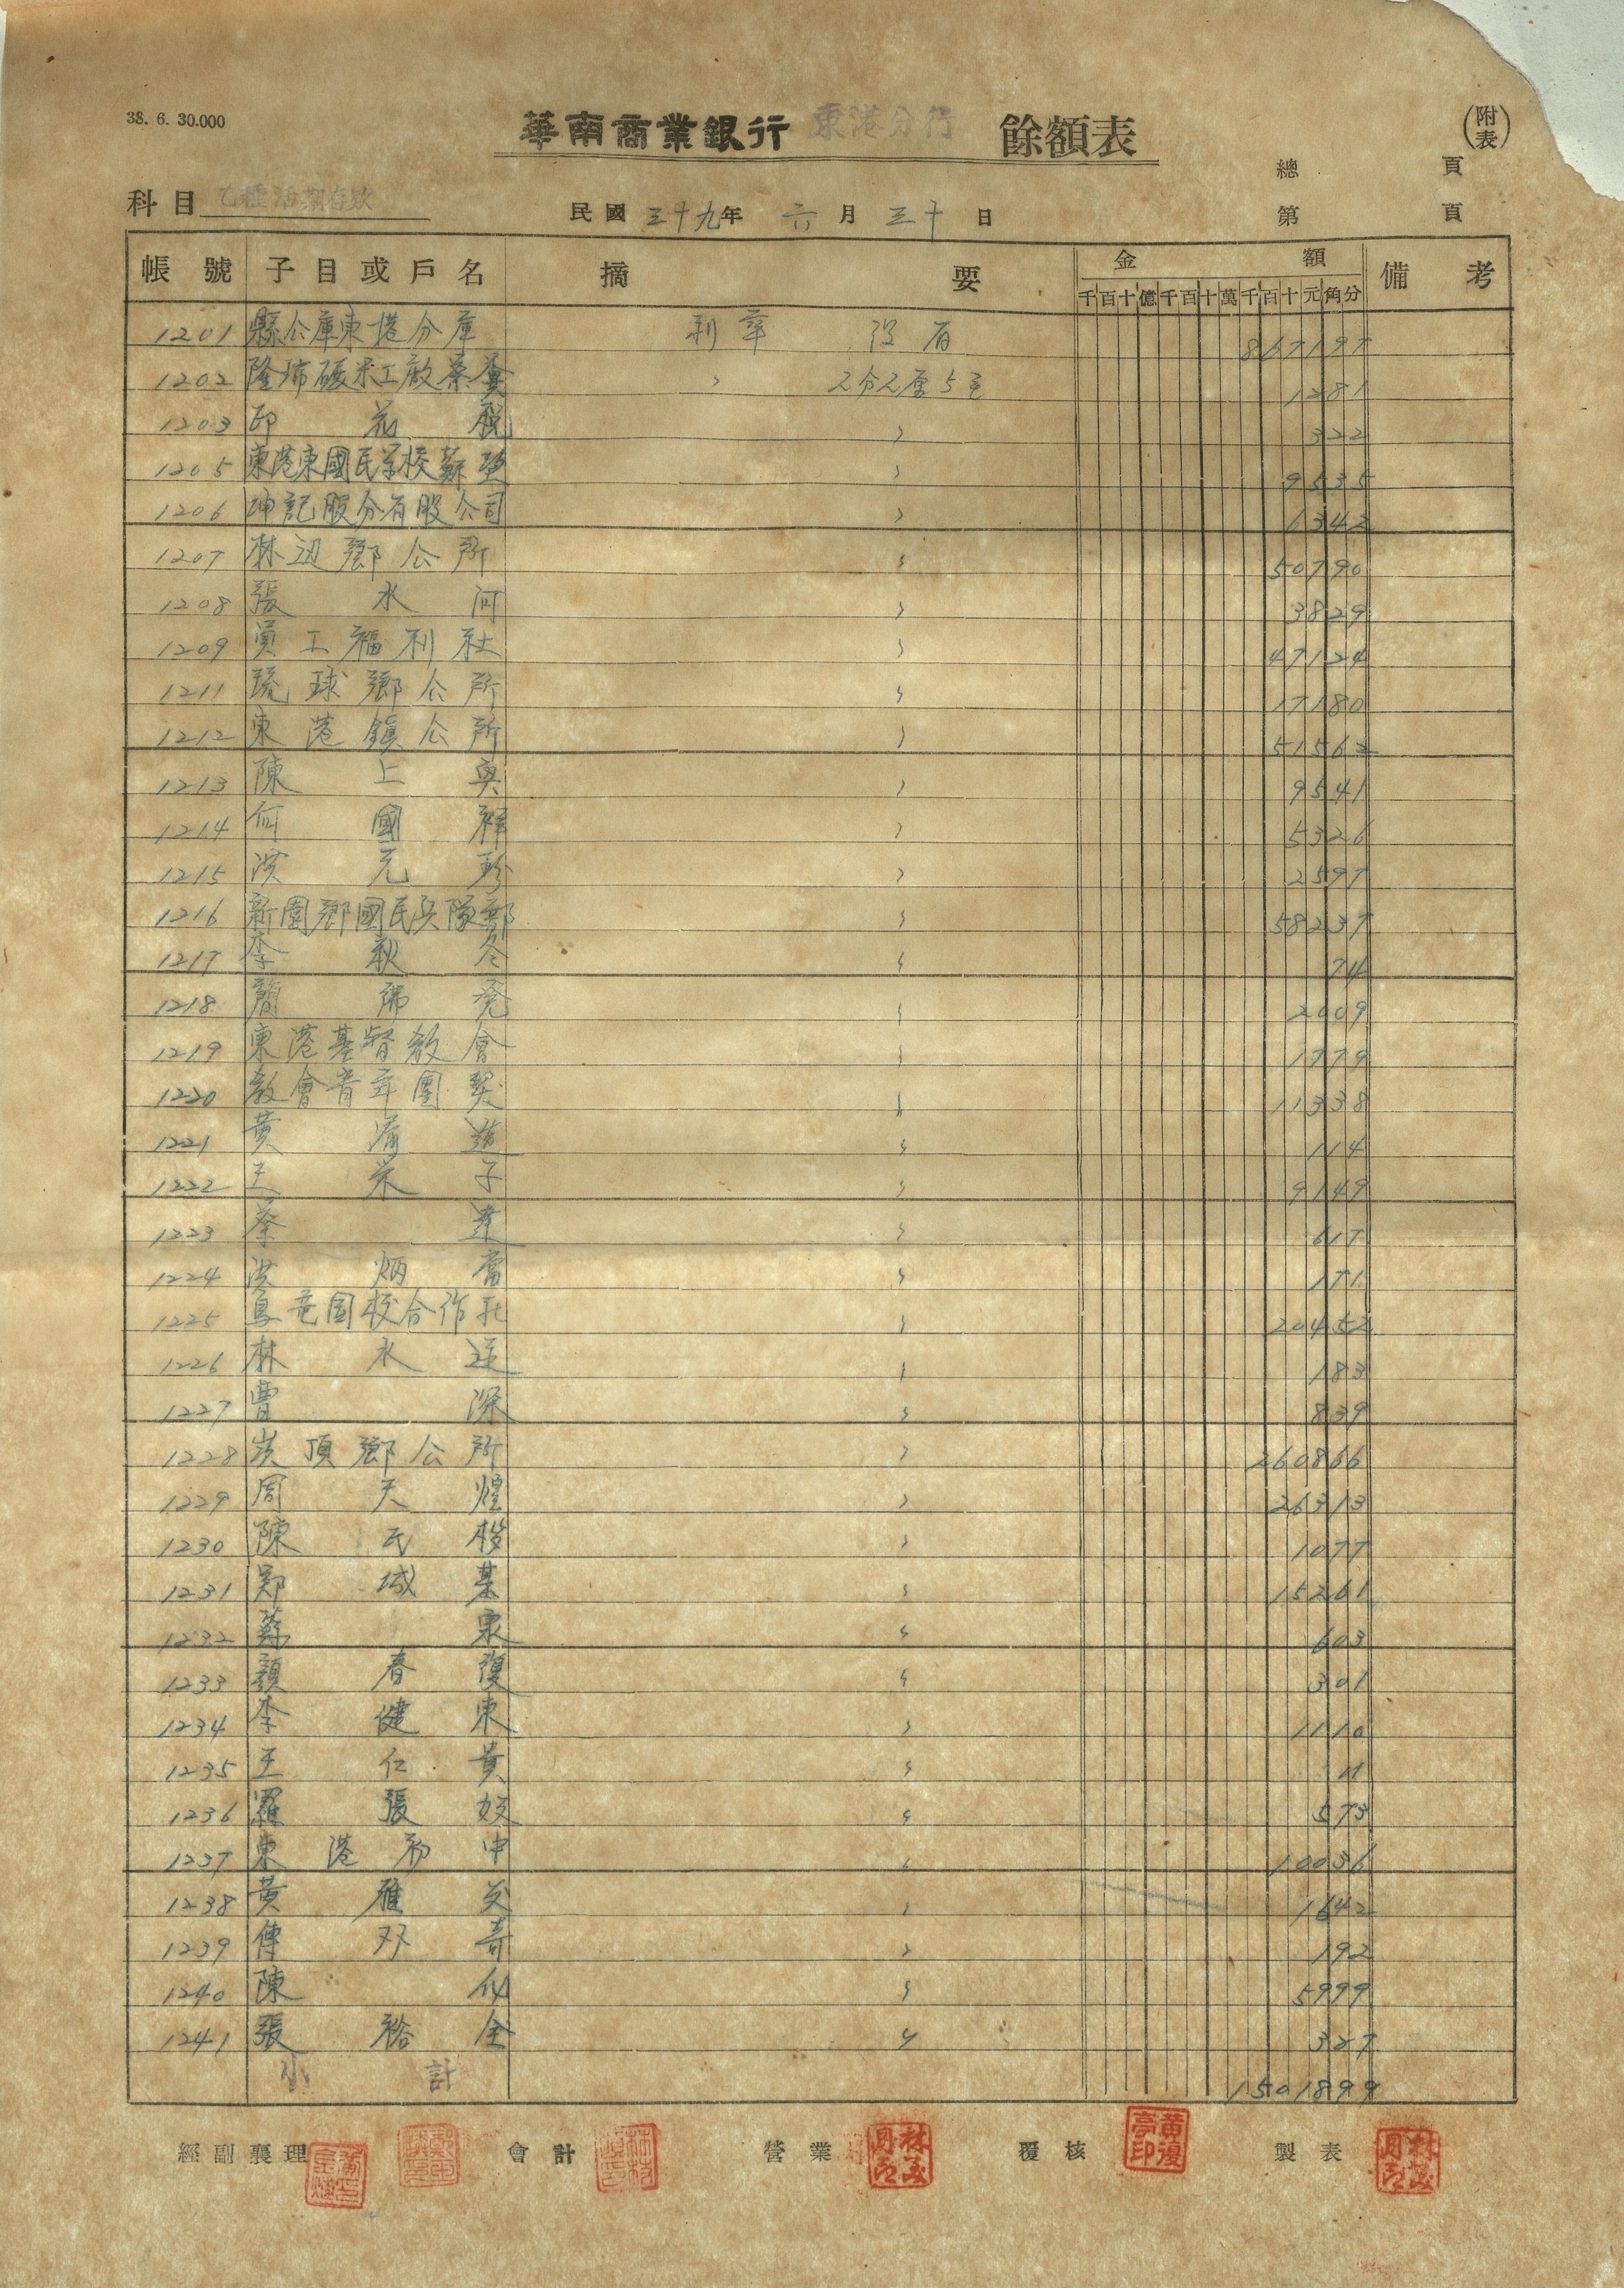 38. 6. 30.000
華南商業銀行 東港分行 餘額表
(附表)
總 頁
科目 乙種活期存款 民國 三十九 年 六 月 三十 日 第 頁
帳號 子目或戶名 摘要 金額 備考
千百十億千百十萬千百十元角分
1201 縣公庫東港分庫 利率 沒有 867197
1202 隆 碾米工廠蔡 〃 2分2厘5毛 1281
1203 印花稅 〃 322
1205 東港東國民学校蘇 〃 9535
1206 坤記股分有股公司 〃 1342
1207 林边鄉公所 〃 50790
1208 張水河 〃 3829
1209 員工福利社 〃 47124
1211 琉球鄉公所 〃 17180
1212 東港鎮公所 〃 51562
1213 陳上 〃 9541
1214 何國祥 〃 5326
1215 洪元珍 〃 2597
1216 新園鄉國民兵隊部 〃 58237
1217 李 〃 74
1218 簡 〃 2009
1219 東港基督教會 〃 1779
1220 教會青年團契 〃 11338
1221 黃 〃 114
1222 王栄子 〃 9149
1223 蔡達 〃 617
1224 洪炳當 〃 171
1225 竜国校合作社 〃 20452
1226 林水 〃 183
1227 曹深 〃 839
1228 崁頂鄉公所 〃 260866
1229 周天煌 〃 26313
1230 陳民 〃 1077
1231 鄭城基 〃 15261
1232 蘇 〃 603
1233 顏春復 〃 301
1234 李健東 〃 1110
1235 王仁貴 〃 11
1236 羅張 〃 573
1237 東港初中 〃 10036
1238 黃雁 〃 1642
1239 傅双奇 〃 192
1240 陳似 〃 5999
1241 張裕全 〃 327
小計 1501899
經副襄理 會計 營業 覆核 製表